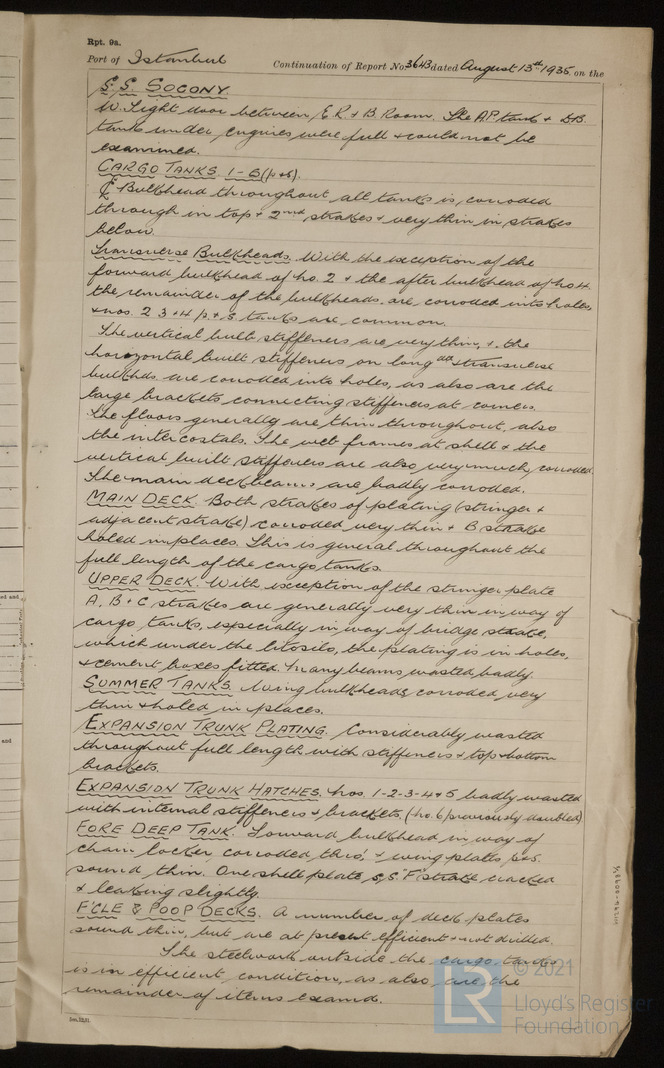 Rpt. 9a.
Port of Istanbul Continuation of Report No. 3643 dated August 13th 1935. on the
S.S. SOCONY.
W. Tight door between E.R & B. Room. The A.P. tank & D.B
tank under engines were full & could not be
examined.
CARGO TANKS. 1-6 (p&s).
℄ Bulkhead throughout all tanks is corroded
through in top & 2nd strakes & very thin in strakes
below.
Transverse Bulkheads. With the exception of the
forward bulkhead of No. 2 & the after bulkhead of No 4
the remainder of the bulkheads are corroded into holes,
& nos. 2 3 & 4 p & s tanks are common.
The vertical built stiffeners are very thin, & the
horizontal built stiffeners on long & transverse
bulkhds are corroded into holes, as also are the
large brackets connecting stiffeners at corners.
The floors generally are thin throughout, also
the intercostals. The web frames at shell & the
vertical built stiffeners are also very much corroded.
The main deck beams are badly corroded.
MAIN DECK. Both strakes of plating (stringer &
adjacent strake) corroded very thin & B strake
holed in places. This is general throughout the
full length of the cargo tanks.
UPPER DECK. With exception of the stringer plate
A, B & C strakes are generally very thin in way of
cargo tanks, especially in way of bridge,
which under the litosilo, the plating is in holes,
& cement boxes fitted. Many beams wasted badly.
SUMMER TANKS. Wing bulkheads corroded very
thin & holed in places.
EXPANSION TRUNK PLATING. Considerably wasted
throughout full length with stiffeners & top & bottom
brackets.
EXPANSION TRUNK HATCHES. Nos. 1-2-3-4 & 5 badly wasted
with internal stiffeners & brackets, (No. 6 previously doubled)
FORE DEEP TANK. Forward bulkhead in way of
chain locker corroded thro', & wing plates p&s.
sound thin. One shell plate s.s "F" strake cracked
& leaking slightly.
F'CLE & POOP DECKS. A number of deck plates
sound thin, but are at present efficient & not drilled.
The steelwork outside the cargo tanks
is in efficient condition, as also are the
remainder of items examd.
© 2021
Lloyd's Register
Foundation